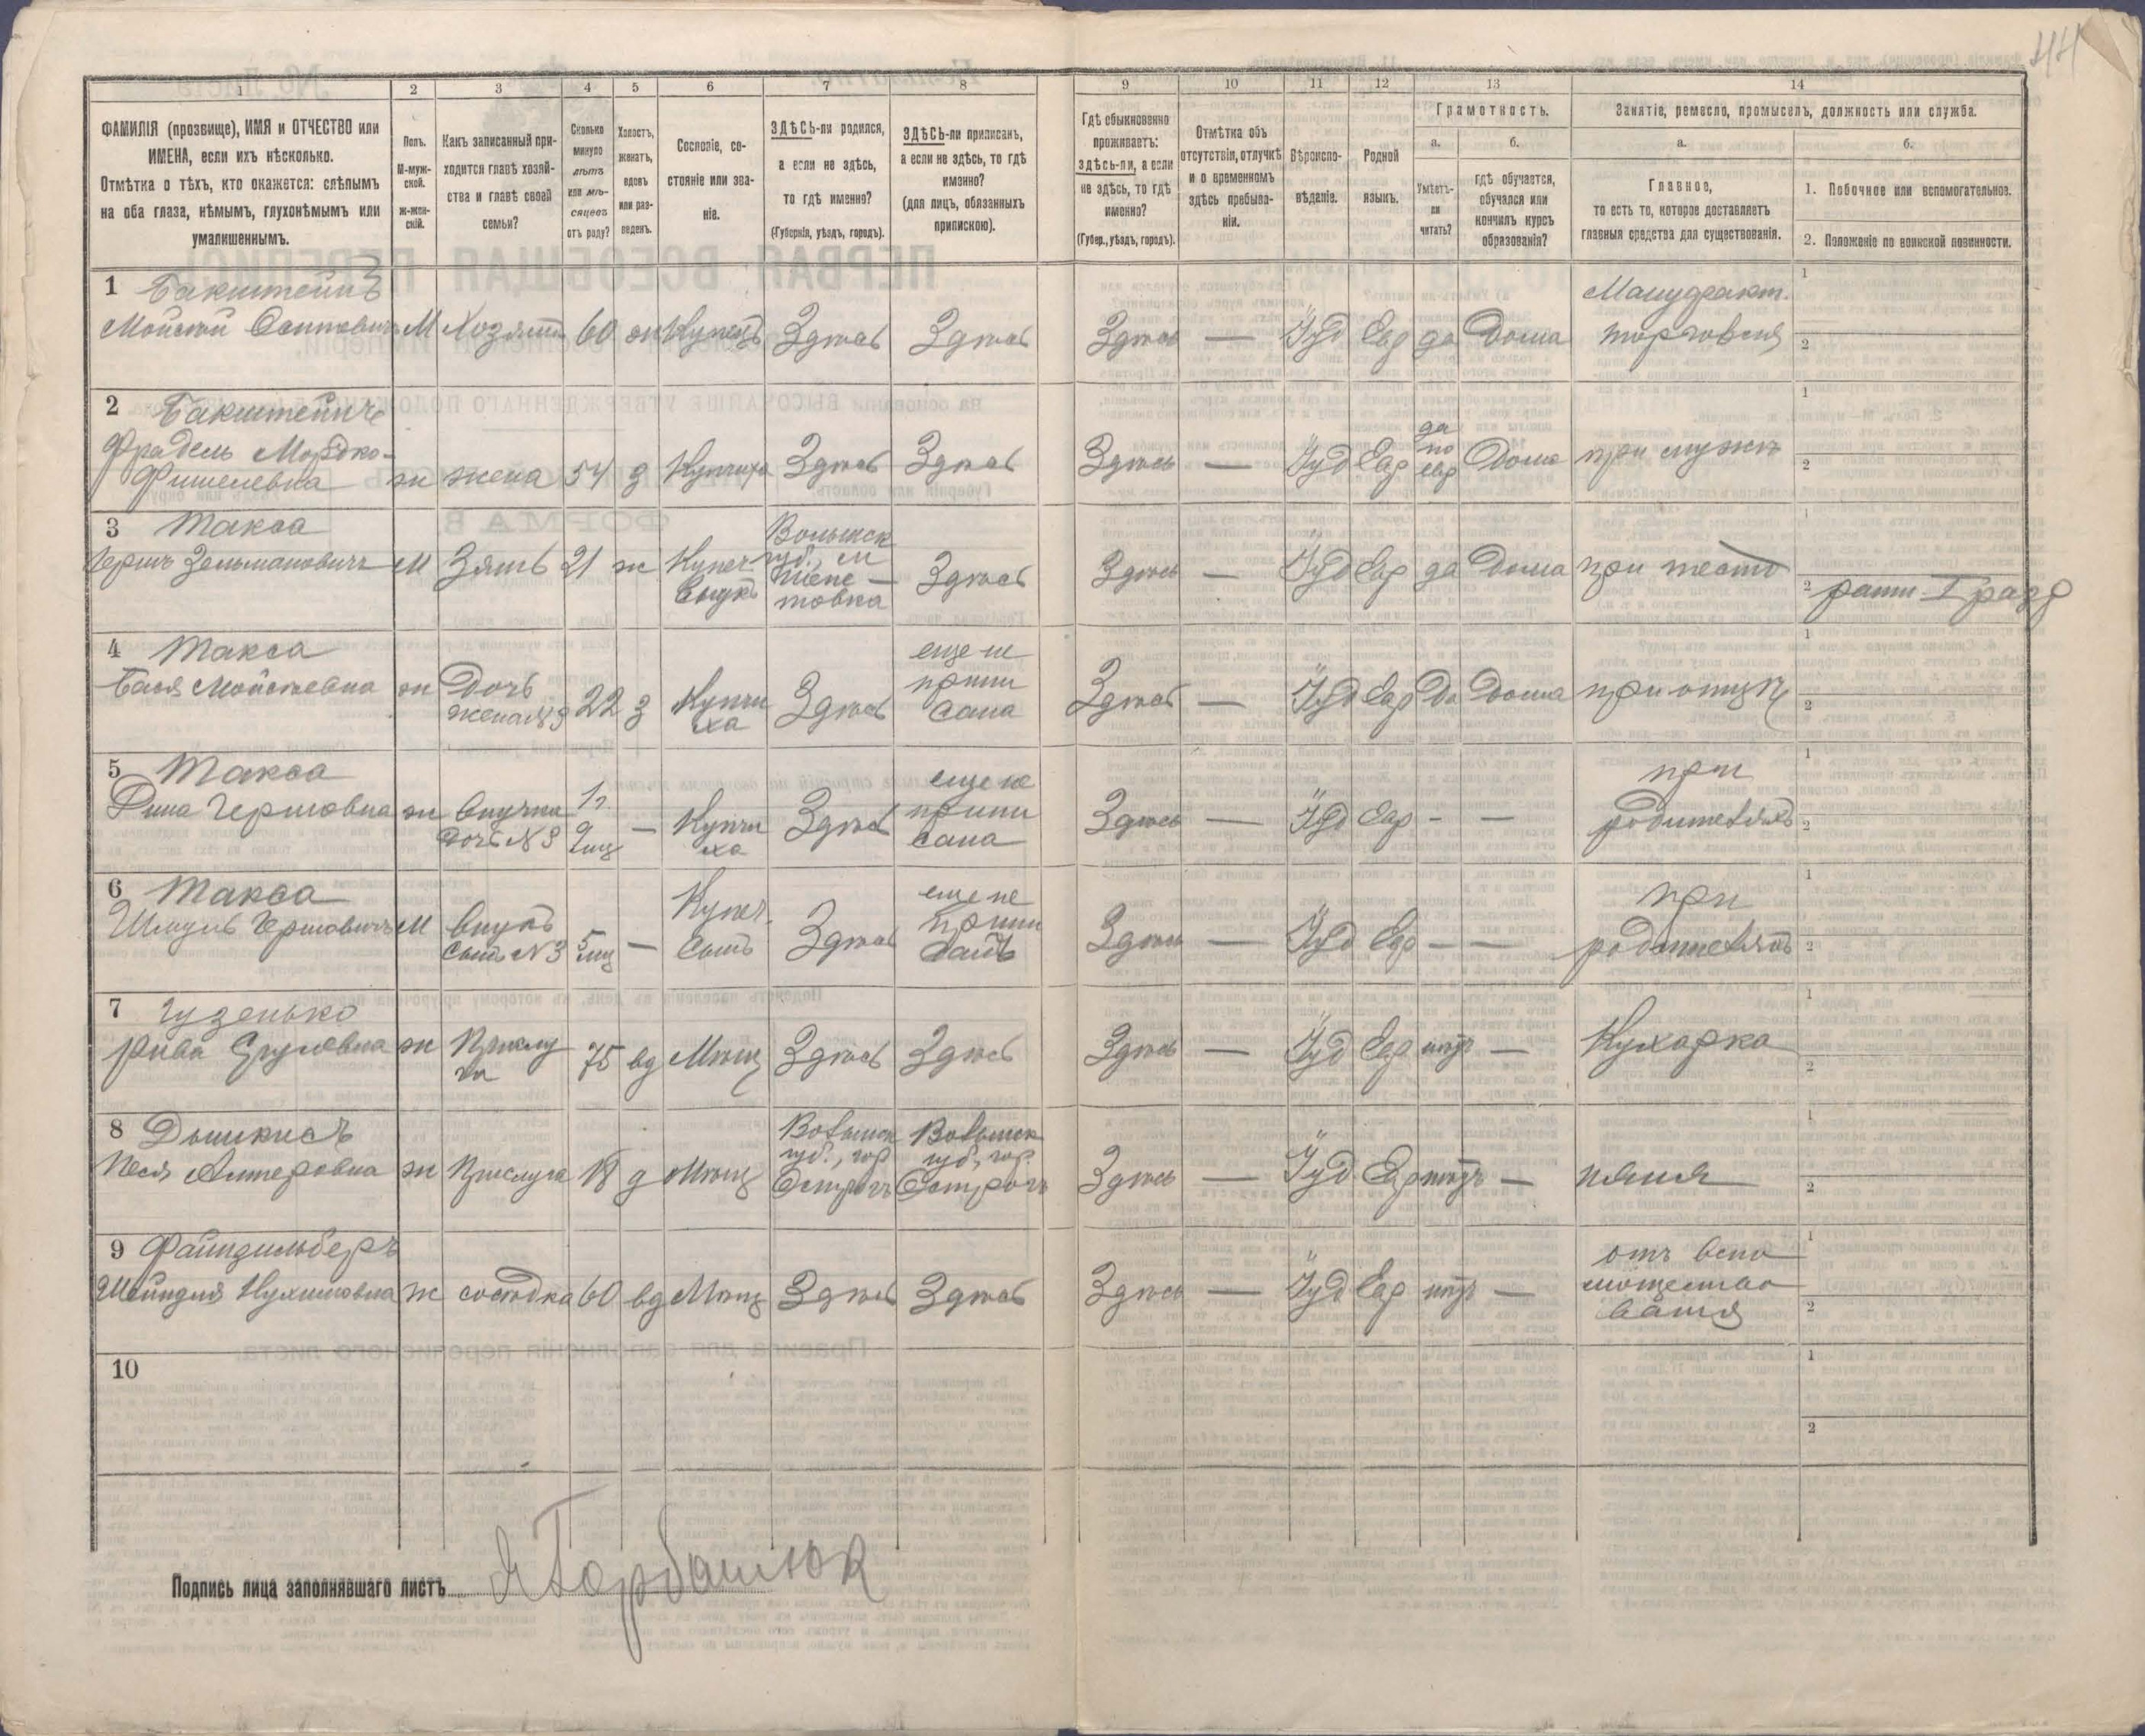 44
1
2
3
4
5
6
7
8
9
10
11
12
13
14
ФАМИЛІЯ (прозвище), ИМЯ и ОТЧЕСТВО или
ИМЕНА, если ихъ нѣсколько.
Отмѣтка о тѣхъ, кто окажется: слѣпымъ
на оба глаза, нѣмымъ, глухонѣмымъ или
умалишеннымъ.
Полъ.
М-муж-
ской.
ж-жен-
скій.
Какъ записанный при-
ходится главѣ хозяй-
ства и главѣ своей
семьи?
Сколько
минуло
лѣтъ
или мѣ-
сяцевъ
отъ роду?
Холостъ,
женатъ,
вдовъ
или раз-
веденъ.
Сословіе, со-
стояніе или зва-
ніе.
ЗДѢСЬ-ли родился,
а если не здѣсь,
то гдѣ именно?
(Губернія, уѣздъ, городъ).
ЗДѢСЬ-ли приписанъ,
а если не здѣсь, то гдѣ
именно?
(для лицъ, обязанныхъ
припискою).
Гдѣ обыкновенно
проживаетъ:
здѣсь-ли, а если
не здѣсь, то гдѣ
именно?
(Губер., уѣздъ, городъ).
Отмѣтка объ
отсутствіи, отлучкѣ
и о временномъ
здѣсь пребыва-
ніи.
Вѣроиспо-
вѣданіе.
Родной
языкъ.
Грамотность.
а.
Умѣетъ-
ли
читать?
б.
гдѣ обучается,
обучался или
кончилъ курсъ
образованія?
Занятіе, ремесло, промыселъ, должность или служба.
а.
Главное,
то есть то, которое доставляетъ
главныя средства для существованія.
б.
1. Побочное или вспомогательное.
2. Положеніе по воинской повинности.
1 Бакштейнъ
М Хозяинъ 60 ж Купецъ Здѣсь Здѣсь Здѣсь — Іуд Евр да Дома Мануфакт.
торговля
1
2
2 Бакштейнъ
Фрадель Мордко-
Фишелевна ж жена 54 з Купчиха Здѣсь Здѣсь Здѣсь — Іуд Евр да
по
евр Дома при мужѣ
1
2
3 Такса
Гершъ Зельмановичъ М Зять 21 ж Купеч.
внукъ Волынск
губ., м
Шепе-
товка Здѣсь Здѣсь — Іуд Евр да Дома при тестѣ
1
2 ратн I разр
4 Такса
Бася Мойсеевна ж Дочь
жена №3 22 з Купчи
ха Здѣсь еще не
припи
сана Здѣсь — Іуд Евр да Дома при отцѣ
1
2
5 Такса
Гершовна ж внучка
дочь №3 1г
2мц — Купчи
ха Здѣсь еще не
припи
сана Здѣсь — Іуд Евр - — при
родителяхъ
1
2
6 Такса
Шмуль Гершовичъ М внукъ
сынъ №3 5
мц — Купеч.
сынъ Здѣсь еще не
припи
санъ Здѣсь — Іуд Евр — — при
родителяхъ
1
2
7 Гузенько
Рива Срулевна ж Прислу
га 75 вд Мѣщ Здѣсь Здѣсь Здѣсь — Іуд Евр нѣтъ — Кухарка
1
2
8
Песя Алтеровна ж Прислуга 18 д Мѣщ Волынск
губ., гор
Острогъ Волынск
губ., гор.
Острогъ Здѣсь — Іуд Евр нѣтъ — няня
1
2
9
Шейндля ж сосѣдка 60 вд Мѣщ Здѣсь Здѣсь Здѣсь — Іуд Евр нѣтъ — отъ вспо
1
2
10
1
2
Подпись лица заполнявшаго листъ